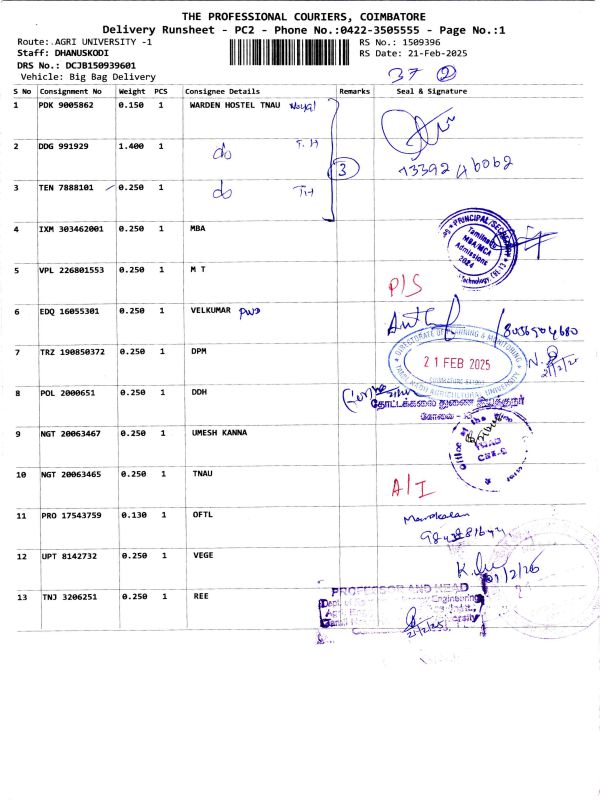 THE PROFESSIONAL COURIERS, COIMBATORE
Delivery Runsheet - PC2 - Phone No.:0422-3505555 - Page No.:1
Route: AGRI UNIVERSITY -1
RS No.: 1509396
Staff: DHANUSKODI
RS Date: 21-Feb-2025
DRS No.: DCJB150939601
Vehicle: Big Bag Delivery
37 2
S No Consignment No Weight PCS Consignee Details Remarks Seal & Signature
1 PDK 9005862 0.150 1 WARDEN HOSTEL TNAU
2 DDG 991929 1.400 1 do T.H
3
3 TEN 7888101 0.250 1 do TH
4 IXM 303462001 0.250 1 MBA
PRINCIPAL/SEC
Tamilnadu
MBA/MCA
Admissions
2024
5 VPL 226801553 0.250 1 M T
P/S
6 EDQ 16055301 0.250 1 VELKUMAR PWD
7 TRZ 190850372 0.250 1 DPM
DIRECTORATE OF PLANNING & MONITORING
21 FEB 2025
TAMIL NADU AGRICULTURAL UNIVERSITY
8 POL 2000651 0.250 1 DDH
தோட்டக்கலை துணை இயக்குநர்
கோவை -
9 NGT 20063467 0.250 1 UMESH KANNA
Office of the
10 NGT 20063465 0.250 1 TNAU
A/I
11 PRO 17543759 0.130 1 OFTL
12 UPT 8142732 0.250 1 VEGE
13 TNJ 3206251 0.250 1 REE
PROFESSOR AND HEAD
21/2/25